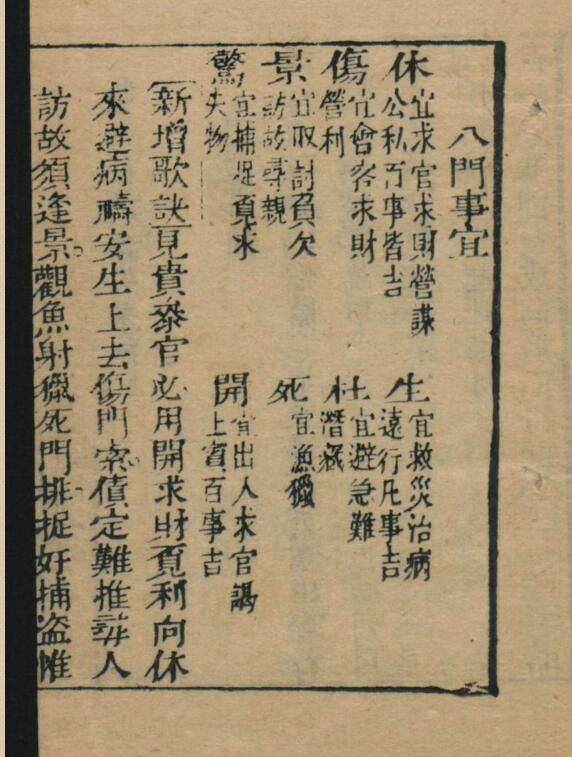 八門事宜
休 宜求官求財營謀公私百事皆吉 生 宜救災治病遠行凡事吉
傷 宜會客求財營利 杜 宜避急難潛藏
景 宜取討負欠訪故尋親 死 宜漁獵
驚 宜捕捉覓求失物 開 宜出人求官謁上賓百事吉
新增歌訣見貴參官必用開求財覓利向休
來避病禱安生上去傷門索債定難推人
訪故須逢景觀魚射獵死門排捉奸捕盜惟